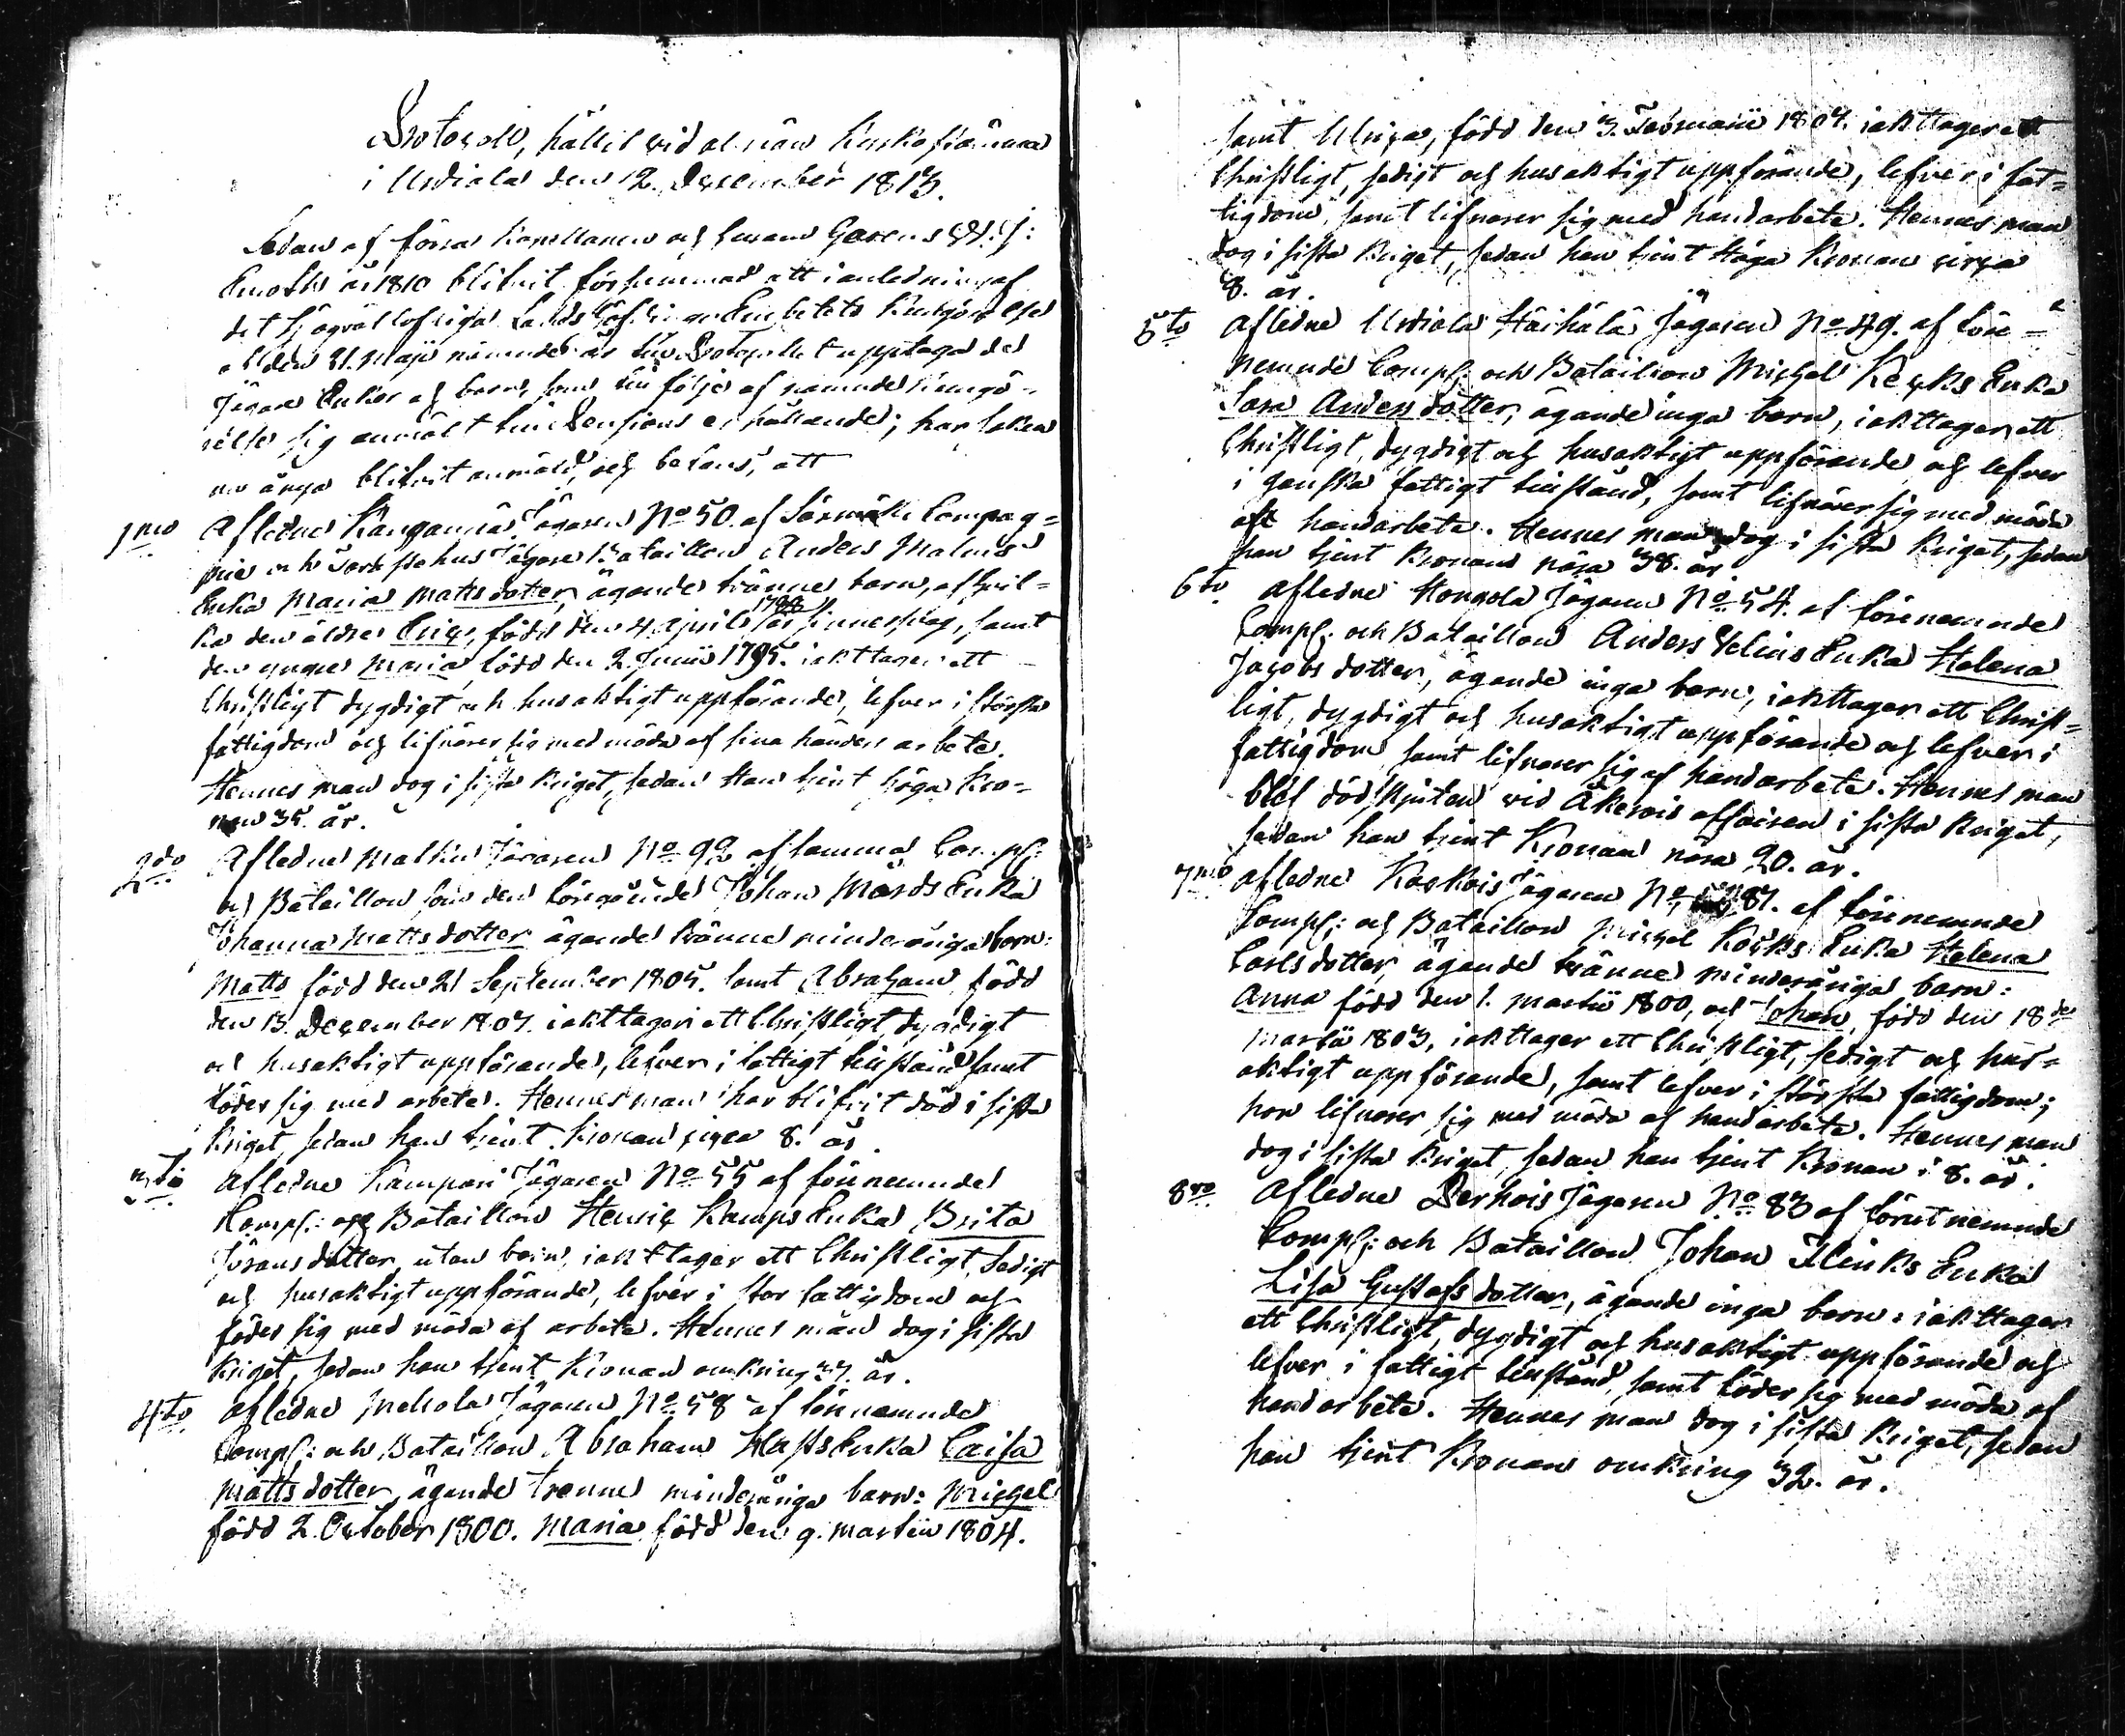 Protocoll, hållit vid almän Kyrkostämma
i Urdiala den 12. December 1813.
Sedan af förra Kapellanen och
år 1810 blifvit försummad att i anledning af
det högvällofliga Lands Höfdinge Embetets Kungörelse
af den 21. Maji nämnde år till Protocollet upptaga de
Jägare Enkor och barn, som till följe af namnde Kungö-
relse sig anmält till Pensions erhållande; har saken
nu ånyo blifvit anmäld, och befans, att
1mo Afledne Kanganniä Jägaren No 50. af Särmäki Compag=
nie och Jägare Bataillon Anders Malms
Enka Maria Matts dotter, ägande tvänne barn, af hvil=
ka den äldre Eric, född den 4 April 1788 sinnessvag, samt
den yngre Maria född den 2. Junii 1795. iakttager ett
Christligt dygdigt och husaktigt uppförande, lefver i största
fattigdom och lifnärer sig med möda af sina händers arbete.
Hennes man dog i sista kriget, sedan Han tjent höga Kro=
nan 35. år.
2do Afledne Jägaren No 92 af samma Comp:
och Bataillon som den föregående Johan Mårds Enka
Johanna Mattsdotter ägande tvänne minderåriga barn:
Matts född den 21 September 1805. samt Abraham, född
den 13. December 1807. iakttager ett Christligt, dygdigt
och husaktigt uppförande, lefver i fattigt tillstånd samt
föder sig med arbete. Hennes man har blifvit död i sista
kriget, sedan han tjent Kronan circa 8. år.
3tio Afledne Kampari Jägaren No 55 af förenemnde
Comp: och Bataillon Henric Kamps Enka Brita
Jörans dotter, utan barn, iakttager ett Christligt, sedigt
och husaktigt uppförande, lefver i stor fattigdom och
föder sig med möda af arbete. Hennes man dog i sista
kriget, sedan han tjent Kronan omkring 37. år.
4to Afledne Jägaren No 58 af förenemnde
Comp: och Bataillon Abraham Enka Caisa
Matts dotter, ägande trenne minderåriga barn: Michel
född 2. October 1800. Maria född den 9. Martii 1804.
samt Ulrica, född den 3. Februarii 1807. iakttager ett
Christligt, sedigt och husaktigt uppförande, lefver i fat=
tigdom, samt lifnärer sig med handarbete. Hennes man
dog i sista kriget, sedan han tjent Höga Kronan circa
8. år.
5to Afledne Urdiala Häihälä Jägaren No 49. af före=
nemnde Comp: och Bataillon Michel Kecks Enka
Sara Anders dotter, ägande inga barn, iakttager ett
Christligt, dygdigt och husaktigt uppförande och lefver
i ganska fattigt tillstånd, samt lifnärer sig med möda
af handarbete. Hennes man dog i sista kriget, sedan
han tjent Kronan nära 38. år.
6to Afledne Hongola Jägaren No 54. af förenemnde
Comp: och Bataillon Anders Enka Helena
Jacobs dotter, ägande inga barn, iakttager ett Christ=
ligt, dygdigt och husaktigt uppförande och lefver i
fattigdom, samt lifnärer sig af handarbete. Hennes man
blef död skjuten vid affairen i sista kriget,
sedan han tjent Kronan nära 20. år.
7mo Afledne Koskois Jägaren No 87. af förenemnde
Comp: och Bataillon Michel Kocks Enka Helena
Carls dotter, ägande tvänne minderåriga barn:
Anna född den 1. Martii 1800, och Johan, född den 18de
Martii 1803, iakttager ett Christligt, sedigt och hus=
aktigt uppförande, samt lefver i största fattigdom;
hon lifnärer sig med möda af handarbete. Hennes man
dog i sista kriget, sedan han tjent Kronan i 8. år.
8vo Afledne Perhois Jägaren No 83 af förutnemnde
Comp: och Bataillon Johan Flinks Enka
Lisa Gustafs dotter, ägande inga barn: iakttager
ett Christligt, dygdigt och husaktigt uppförande och
lefver i fattigt tillstånd, samt föder sig med möda af
handarbete. Hennes man dog i sista kriget, sedan
han tjent Kronan omkring 32. år.